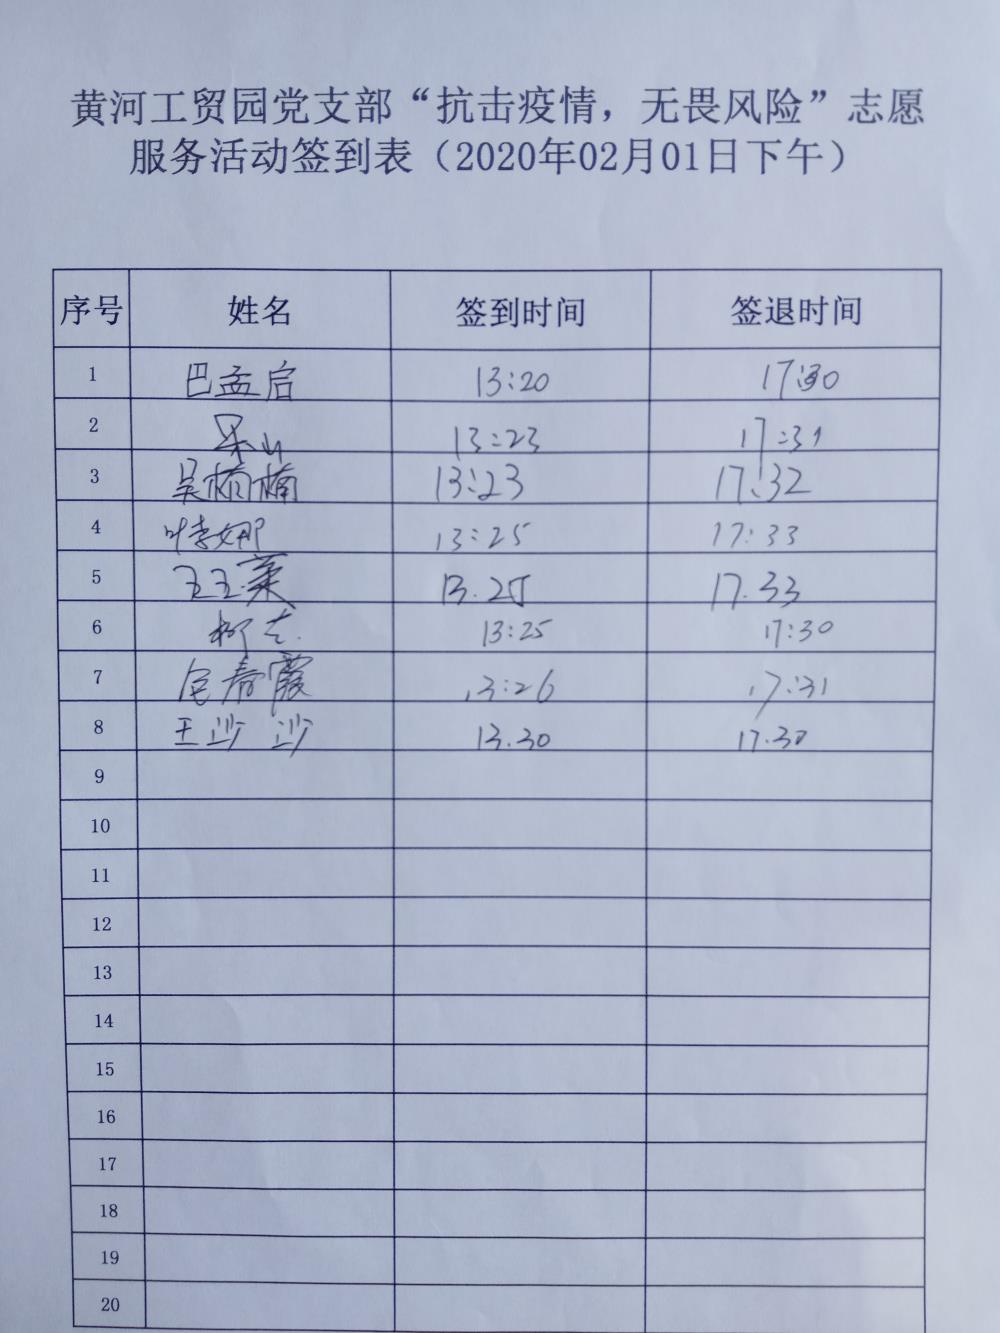 黄河工贸园党支部“抗击疫情，无畏风险”志愿
服务活动签到表（2020年02月01日下午）
序号 姓名 签到时间 签退时间
1 巴孟启 13:20 17:30
2 13:23 17:31
3 吴楠楠 13:23 17:32
4 叶李娜 13:25 17:33
5 王玉荣 13.25 17.33
6 柳志 13:25 17:30
7 春霞 13:26 17:31
8 王沙沙 13.30 17.30
9
10
11
12
13
14
15
16
17
18
19
20